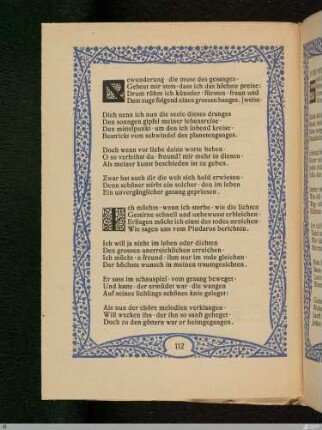 Bewunderung · die muse des gesanges ·
Gebeut mir nun · dass ich den höchsten preise:
Drum rühm ich künstler · fürsten · fraun und
Dem zuge folgend eines grossen hanges. [weise
Dich nenn ich nun die seele dieses dranges
Den sonngen gipfel meiner lebensreise ·
Den mittelpunkt · um den ich lobend kreise ·
Berückt vom schwindel des planetenganges.
Doch wenn vor liebe deine worte beben ·
O so verleihst du · freund! mir mehr in diesen ·
Als meiner kunst beschieden ist zu geben.
Zwar hat auch dir die welt sich hold erwiesen ·
Denn schöner stirbt ein solcher · den im leben
Ein unvergänglicher gesang gepriesen.
Ich möchte · wenn ich sterbe · wie die lichten
Gestirne schnell und unbewusst erbleichen ·
Erliegen möcht ich einst des todes streichen ·
Wie sagen uns vom Pindaros berichten.
Ich will ja nicht im leben oder dichten
Den grossen unerreichlichen erreichen ·
Ich möcht · o freund · ihm nur im tode gleichen ·
Der höchste wunsch in meinen traumgesichten.
Er sass im schauspiel · vom gesang beweget ·
Und hatte · der ermüdet war · die wangen
Auf seines lieblings schönes knie geleget:
Als nun der chöre melodien verklangen ·
Will wecken ihn · der ihn so sanft geheget ·
Doch zu den göttern war er heimgegangen.
112